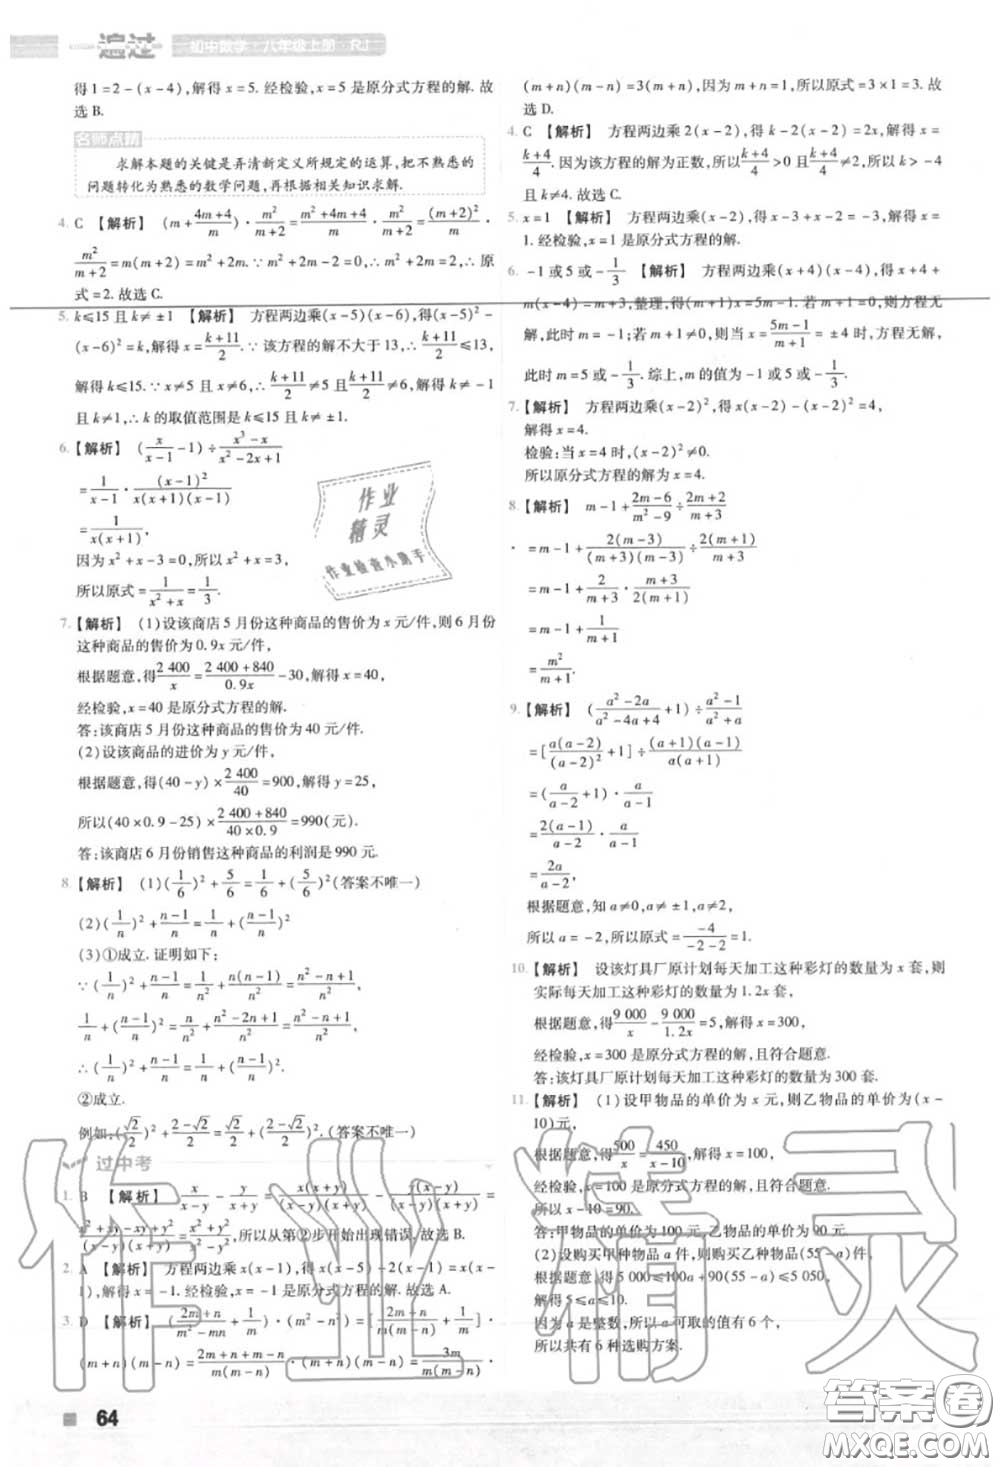 一遍过 初中数学·八年级上册·RJ
得1=2-(x-4),解得x=5.经检验,x=5是原分式方程的解.故
选B.
名师点精
求解本题的关键是弄清新定义所规定的运算,把不熟悉的
问题转化为熟悉的数学问题,再根据相关知识求解.
4. C 【解析】 (m+(4m+4)/m)·m²/(m+2)=(m²+4m+4)/m·m²/(m+2)=(m+2)²/m·
m²/(m+2)=m(m+2)=m²+2m.∵m²+2m-2=0,∴m²+2m=2,∴原
式=2.故选C.
5. k≤15且k≠±1 【解析】 方程两边乘(x-5)(x-6),得(x-5)²-
(x-6)²=k,解得x=(k+11)/2.∵该方程的解不大于13,∴(k+11)/2≤13,
解得k≤15.∵x≠5且x≠6,∴(k+11)/2≠5且(k+11)/2≠6,解得k≠-1
且k≠1,∴k的取值范围是k≤15且k≠±1.
6. 【解析】 (x/(x-1)-1)÷(x³-x)/(x²-2x+1)
=1/(x-1)·(x-1)²/(x(x+1)(x-1))
=1/(x(x+1)),
因为x²+x-3=0,所以x²+x=3,
所以原式=1/(x²+x)=1/3.
7. 【解析】 (1)设该商店5月份这种商品的售价为x元/件,则6月份
这种商品的售价为0.9x元/件,
根据题意,得2 400/x=(2 400+840)/0.9x-30,解得x=40,
经检验,x=40是原分式方程的解.
答:该商店5月份这种商品的售价为40元/件.
(2)设该商品的进价为y元/件,
根据题意,得(40-y)×2 400/40=900,解得y=25,
所以(40×0.9-25)×(2 400+840)/(40×0.9)=990(元).
答:该商店6月份销售这种商品的利润是990元.
8. 【解析】 (1)(1/6)²+5/6=1/6+(5/6)²(答案不唯一)
(2)(1/n)²+(n-1)/n=1/n+((n-1)/n)²
(3)①成立.证明如下:
∵(1/n)²+(n-1)/n=1/n²+n(n-1)/n²=(n²-n+1)/n²,
1/n+((n-1)/n)²=n/n²+(n²-2n+1)/n²=(n²-n+1)/n²,
∴(1/n)²+(n-1)/n=1/n+((n-1)/n)².
②成立.
例如,(√2/2)²+(2-√2)/2=√2/2+((2-√2)/2)².(答案不唯一)
过中考
1. B 【解析】 x/(x-y)-y/(x+y)=x(x+y)/((x-y)(x+y))-y(x-y)/((x-y)(x+y))=
(x²+xy-xy+y²)/((x-y)(x+y))=(x²+y²)/((x-y)(x+y)),所以从第②步开始出现错误.故选B.
2. A 【解析】 方程两边乘x(x-1),得x(x-5)-2(x-1)=x(x-
1),解得x=-1.经检验,x=-1是原分式方程的解.故选A.
3. D 【解析】 ((2m+n)/(m²-mn)+1/m)·(m²-n²)=[(2m+n)/(m(m-n))+1/m]·
(m+n)(m-n)=(2m+n+m-n)/(m(m-n))·(m+n)(m-n)=3m/(m(m-n))·
(m+n)(m-n)=3(m+n),因为m+n=1,所以原式=3.故
选D.
4. C 【解析】 方程两边乘2(x-2),得k-2(x-2)=2x,解得x=
(k+4)/4.因为该方程的解为正数,所以(k+4)/4>0且(k+4)/4≠2,所以k>-4
且k≠4.故选C.
5. x=1 【解析】 方程两边乘(x-2),得x-3+x-2=-3,解得x=
1.经检验,x=1是原分式方程的解.
6. -1或5或-1/3 【解析】 方程两边乘(x+4)(x-4),得x+4+
m(x-4)=m+3,整理,得(m+1)x=5m-1.若m+1=0,则方程无
解,此时m=-1;若m+1≠0,则当x=(5m-1)/(m+1)=±4时,方程无解,
此时m=5或-1/3.综上,m的值为-1或5或-1/3.
7. 【解析】 方程两边乘(x-2)²,得x(x-2)-(x-2)²=4,
解得x=4.
检验:当x=4时,(x-2)²≠0.
所以原分式方程的解为x=4.
8. 【解析】 m-1+(2m-6)/(m²-9)÷(2m+2)/(m+3)
=m-1+2(m-3)/((m+3)(m-3))÷2(m+1)/(m+3)
=m-1+2/(m+3)·(m+3)/(2(m+1))
=m-1+1/(m+1)
=m²/(m+1).
9. 【解析】 ((a²-2a)/(a²-4a+4)+1)÷(a²-1)/(a²+a)
=[a(a-2)/(a-2)²+1]÷(a+1)(a-1)/(a(a+1))
=(a/(a-2)+1)·a/(a-1)
=2(a-1)/(a-2)·a/(a-1)
=2a/(a-2),
根据题意,知a≠0,a≠±1,a≠2,
所以a=-2,所以原式=-4/(-2-2)=1.
10. 【解析】 设该灯具厂原计划每天加工这种彩灯的数量为x套,则
实际每天加工这种彩灯的数量为1.2x套,
根据题意,得9 000/x-9 000/1.2x=5,解得x=300,
经检验,x=300是原分式方程的解,且符合题意.
答:该灯具厂原计划每天加工这种彩灯的数量为300套.
11. 【解析】 (1)设甲物品的单价为x元,则乙物品的单价为(x-
10)元,
根据题意,得500/x=450/(x-10),解得x=100,
经检验,x=100是原分式方程的解,且符合题意.
所以x-10=90.
答:甲物品的单价为100元,乙物品的单价为90元.
(2)设购买甲种物品a件,则购买乙种物品(55-a)件,
根据题意,得5 000≤100a+90(55-a)≤5 050,
解得5≤a≤10.
因为a是整数,所以a可取的值有6个,
所以共有6种选购方案.
64
作业
精灵
作业检查小助手
作业精灵
答案圈
MXQE.COM